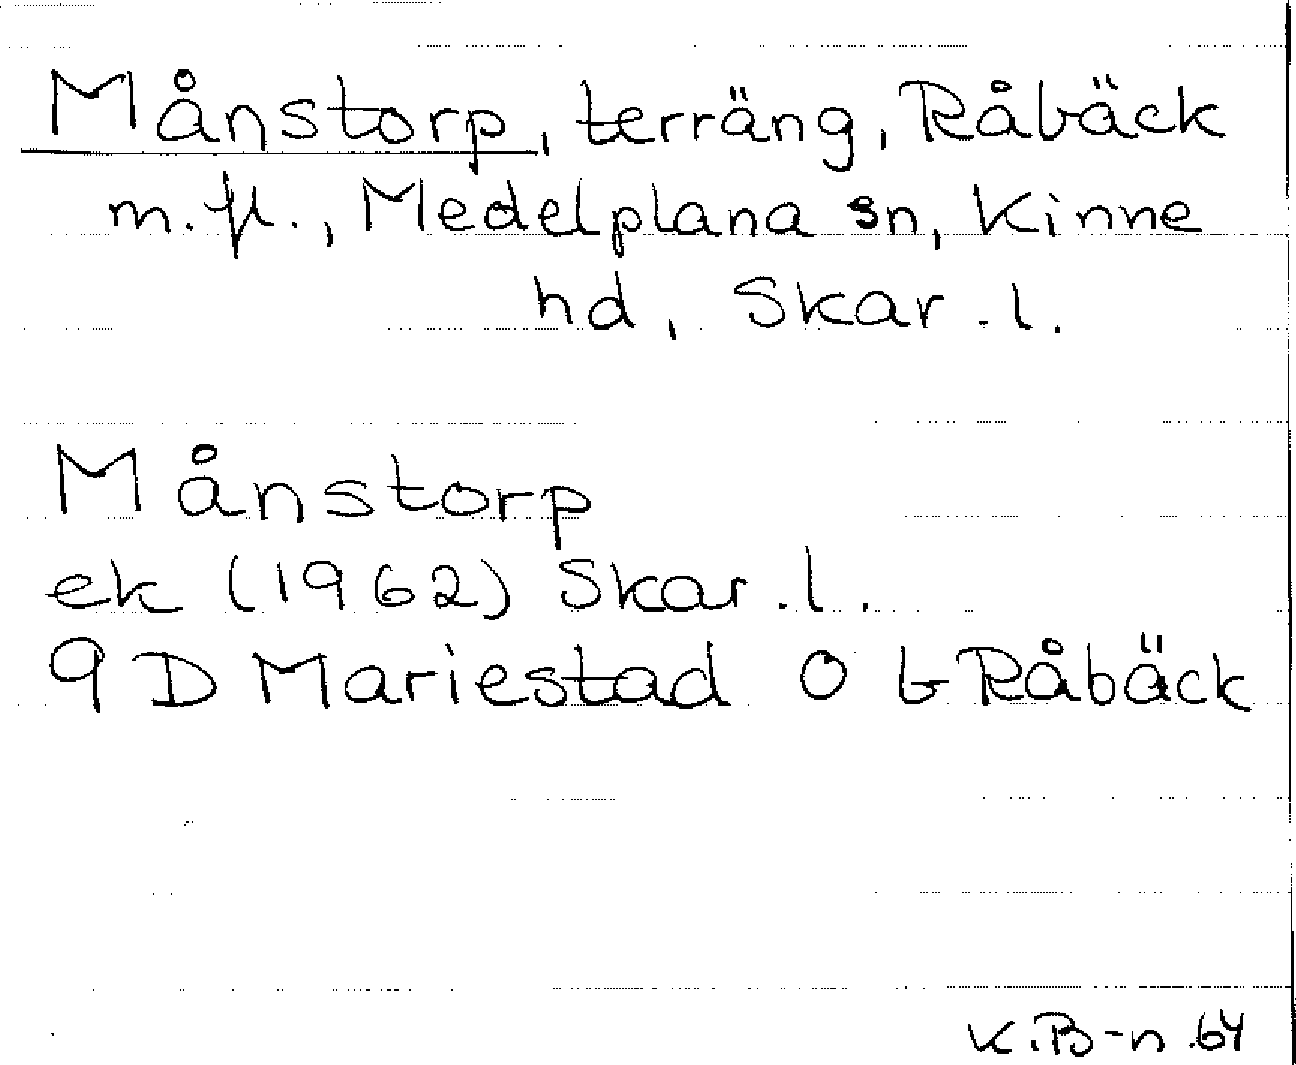 Månstorp, terräng, Råbäck
m.fl., Medelplana sn, Kinne
hd, Skar.l.
Månstorp
ek (1962) Skar.l.
9D Mariestad O b Råbäck
K.B-n.64